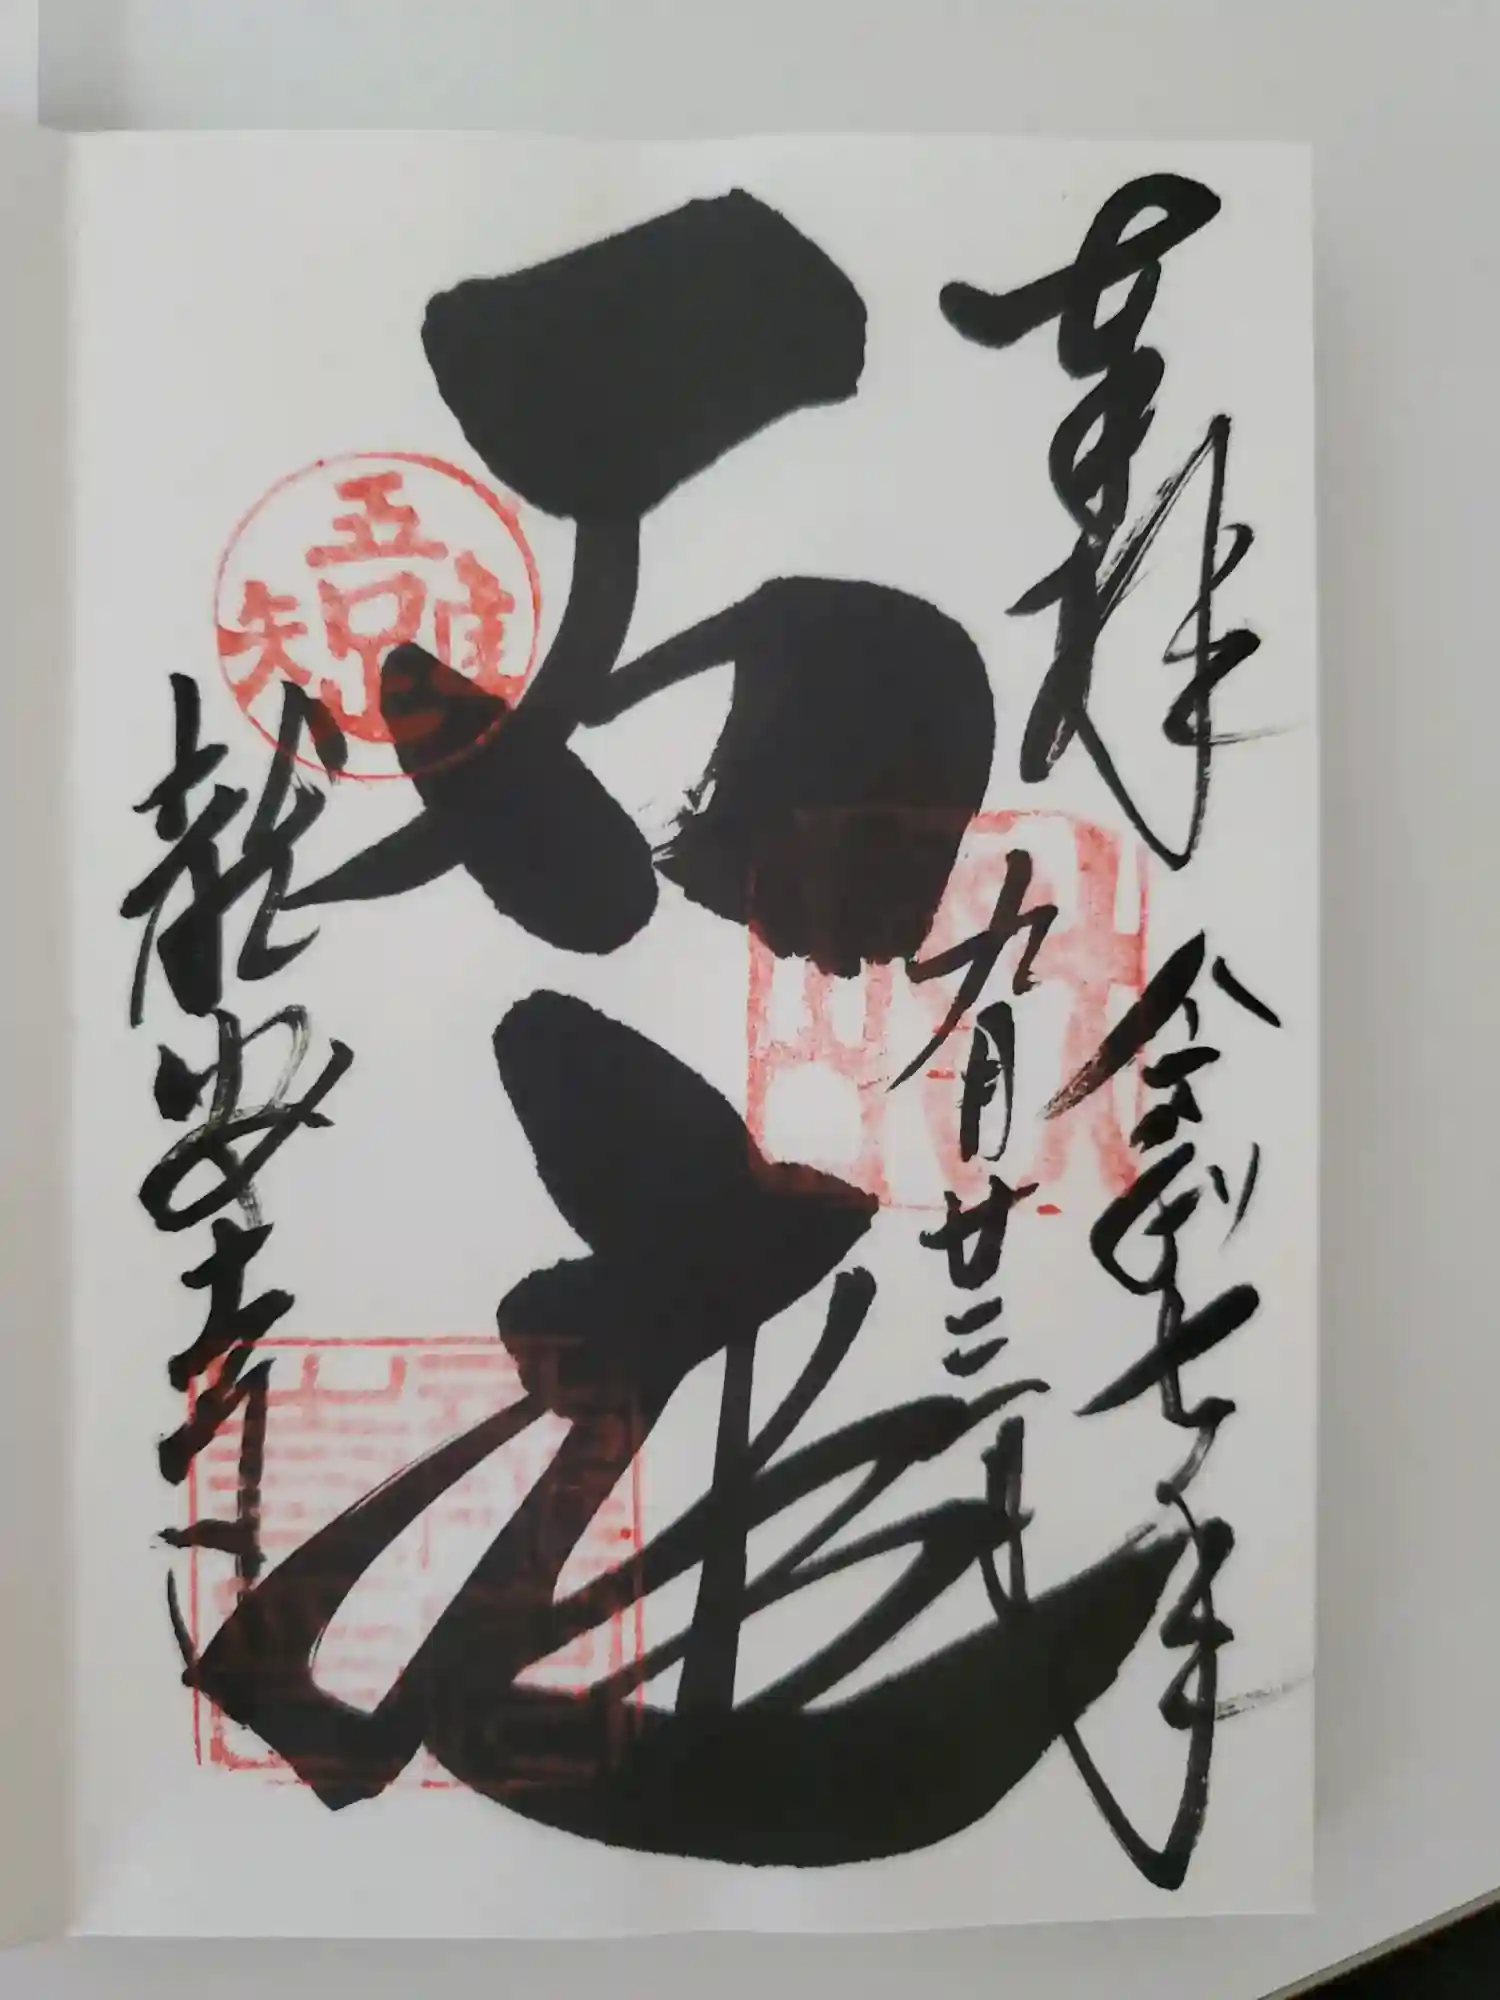 奉拝
令和七年
九月廿三日
石庭
龍安寺
吾唯知足